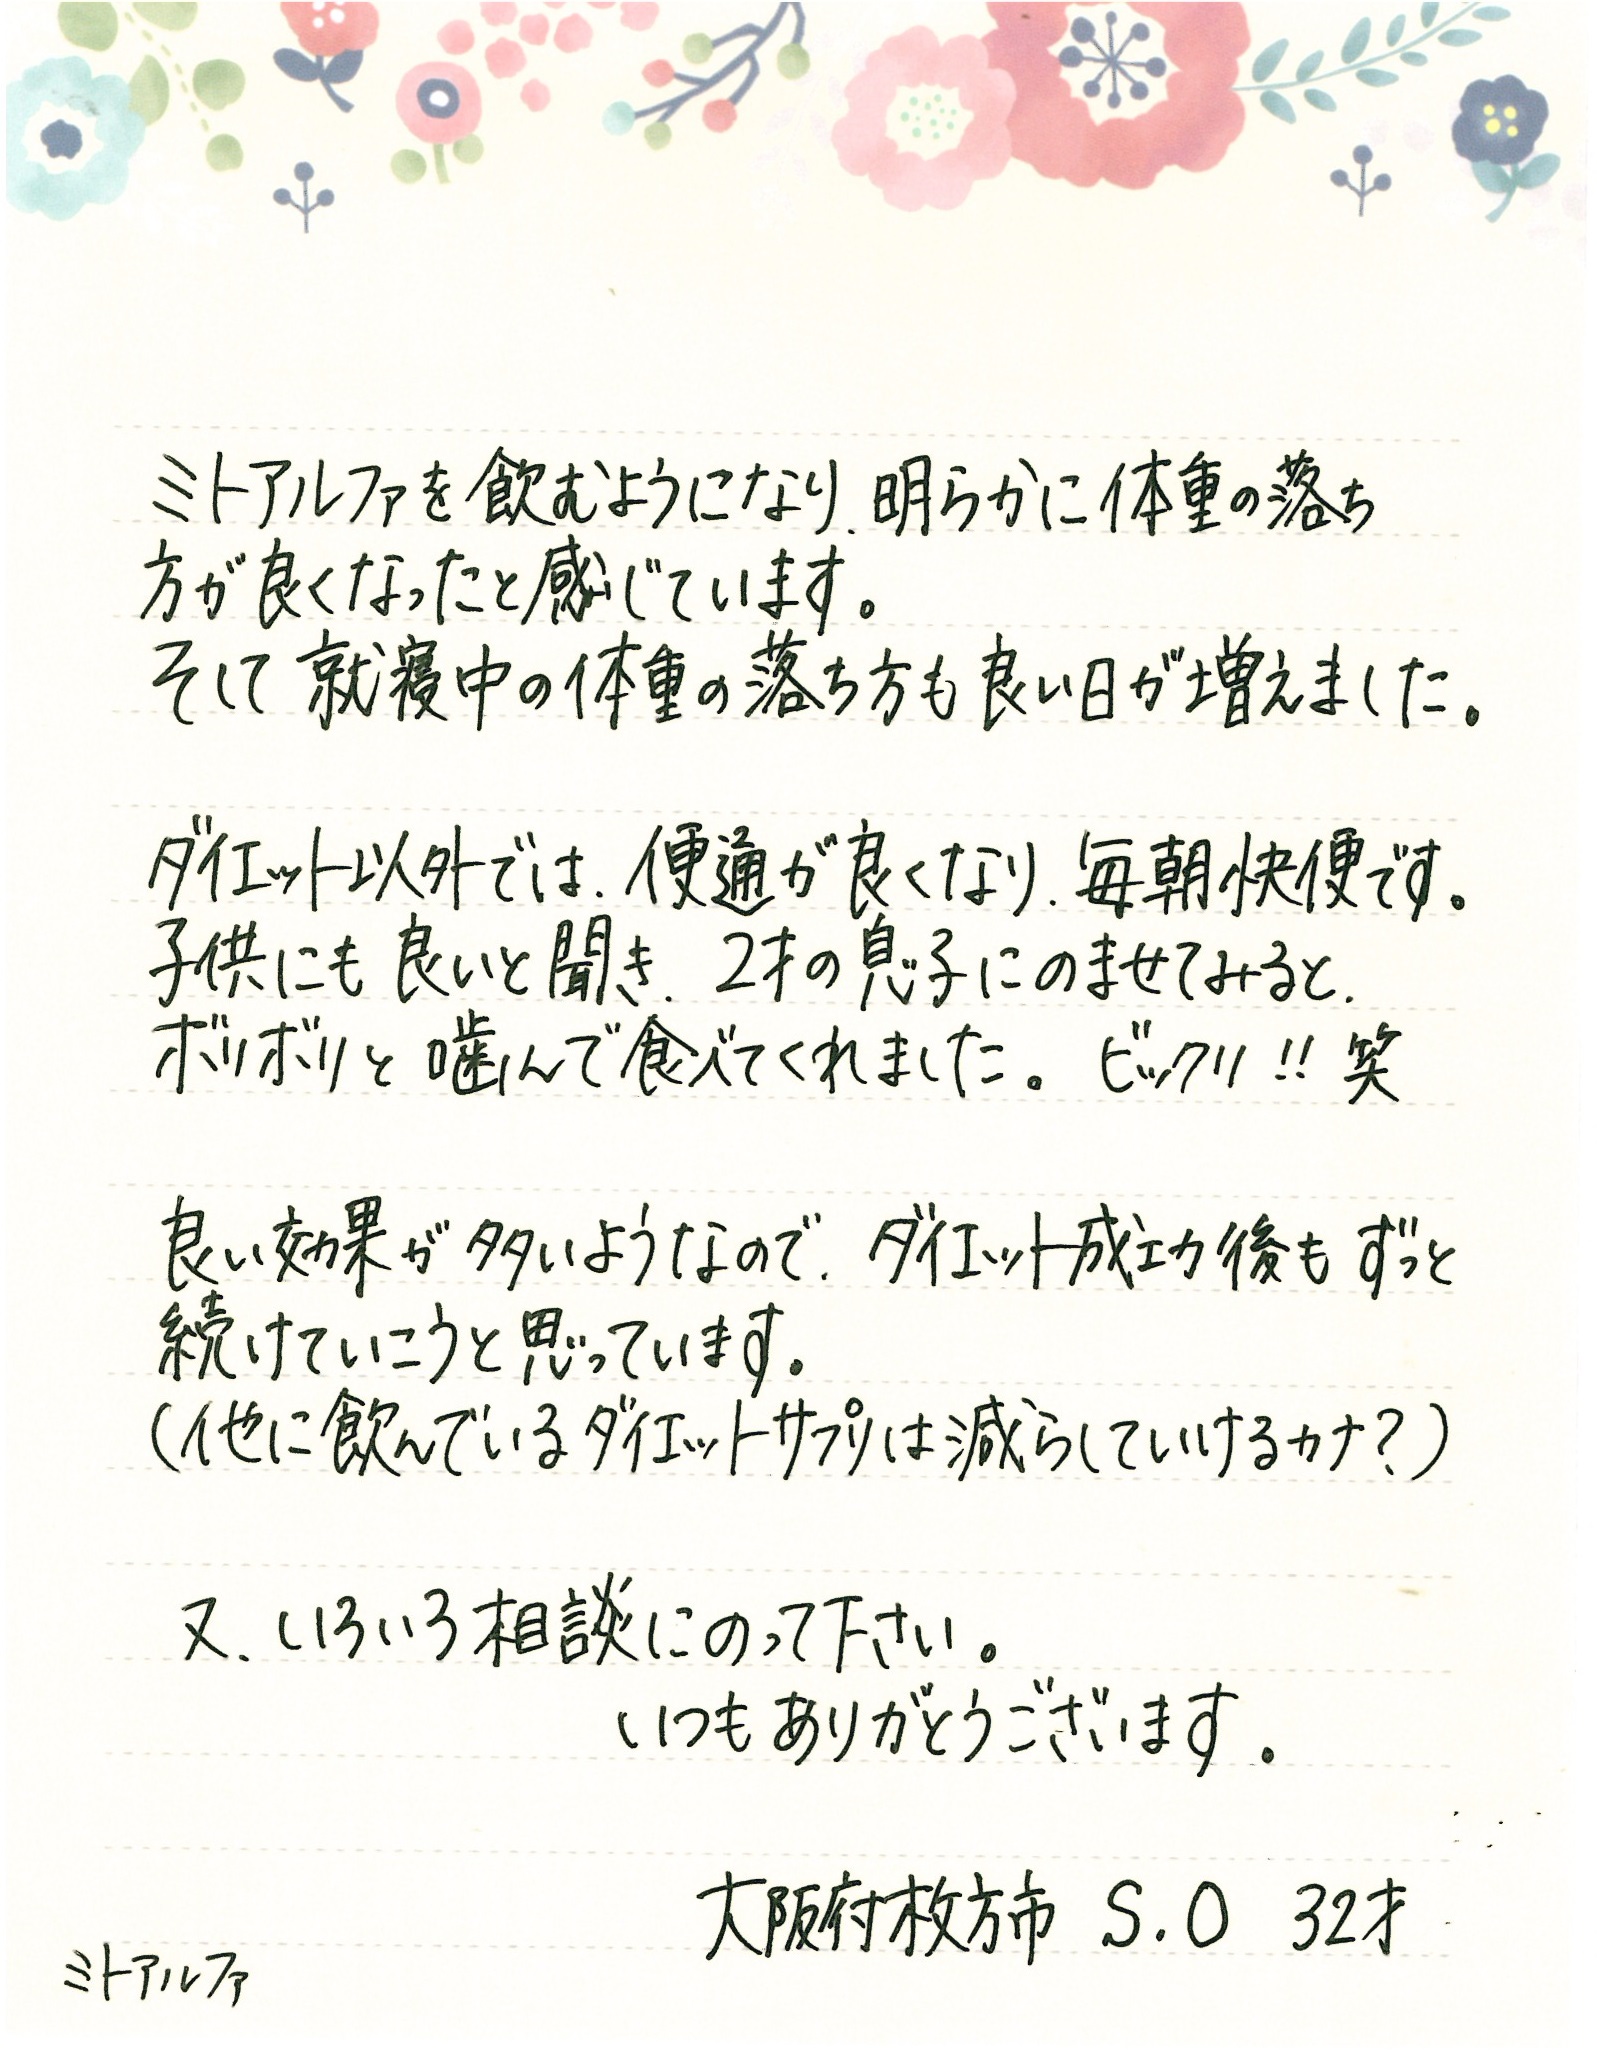 ミトアルファを飲むようになり、明らかに体重の落ち
方が良くなったと感じています。
そして就寝中の体重の落ち方も良い日が増えました。
ダイエット以外では、便通が良くなり、毎朝快便です。
子供にも良いと聞き、2才の息子にのませてみると、
ボリボリと噛んで食べてくれました。ビックリ!!笑
良い効果が多いようなので、ダイエット成功後もずっと
続けていこうと思っています。
(他に飲んでいるダイエットサプリは減らしていけるカナ?)
又、いろいろ相談にのって下さい。
いつもありがとうございます。
大阪府枚方市 S.O 32才
ミトアルファ